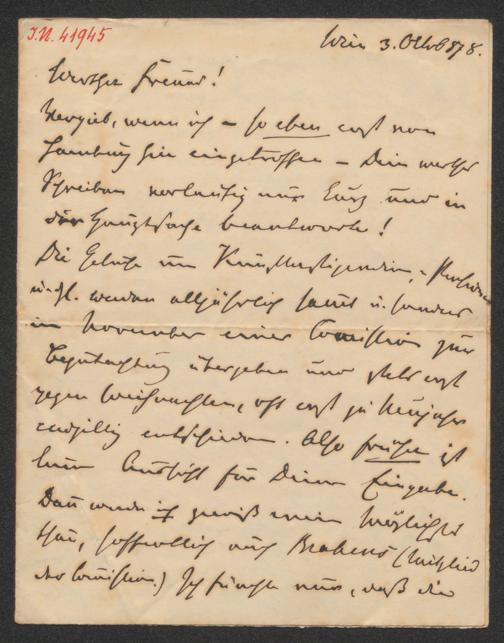 I.N. 41945
Wien 3. Oktob 878.
Werther Freund!
Vergieb, wenn ich – so eben erst von
Hamburg hier eingetroffen – Dein werthes
Schreiben vorläufig nur kurz und in
der Hauptsache beantworte!
Die Gesuche um Künstlerstipendien, Pensionen
u. dgl. werden alljährlich samt u. sonders
im November einer Comission zur
Begutachtung übergeben und stets erst
gegen Weihnachten, oft erst zu Neujahr
endgiltig entschieden. Also früher ist
keine Aussicht für Deine Eingabe.
Dann werde ich gewiß mein Möglichstes
thun, hoffentlich auch Brahms (Mitglied
der Comission.) Ich fürchte nur, daß die